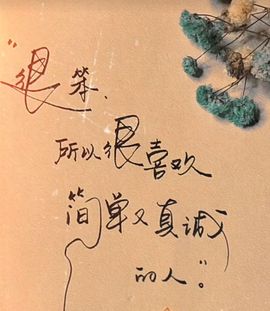 “很笨、
所以很喜欢
简单又真诚
的人”。